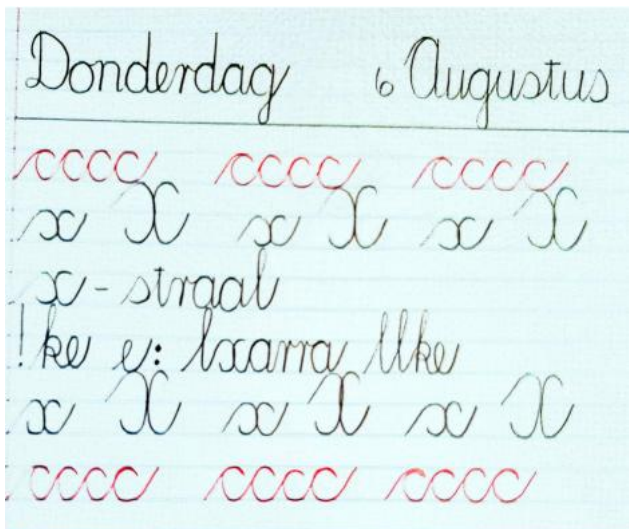 Donderdag 6 Augustus
cccc cccc cccc
x X x X x X
x-straal
!ke e: lxarra llke
x X x X x X
cccc cccc cccc